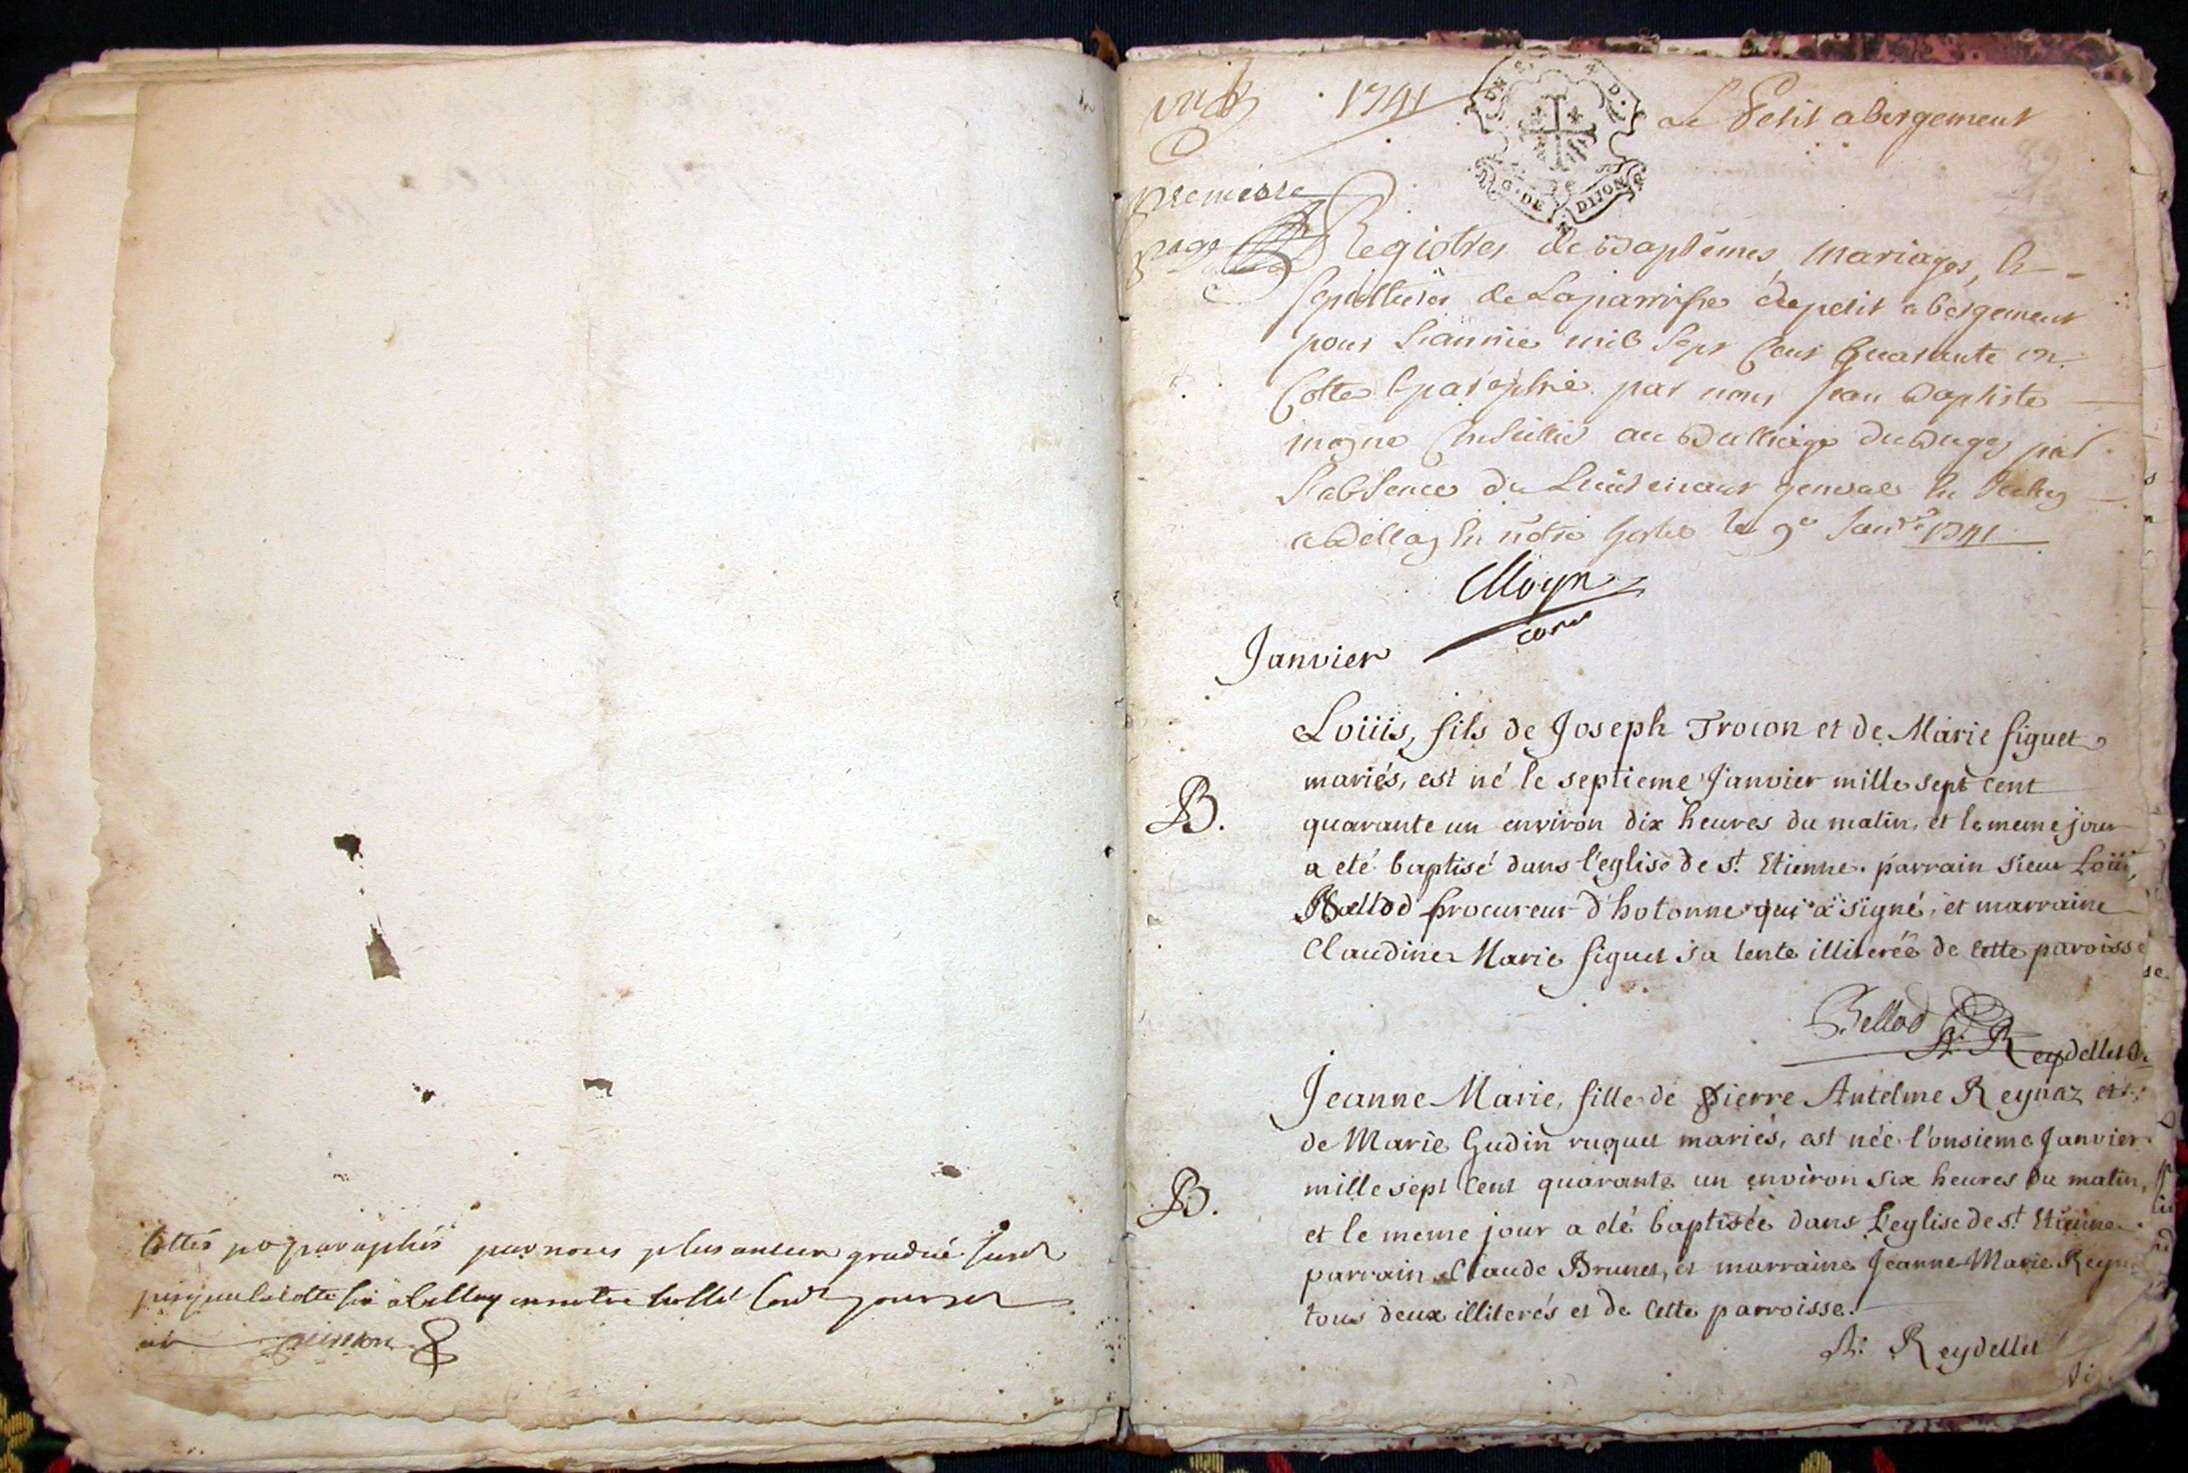 Cottés par nous plus ancien gradué
à belley en notre hotel
1741
Le Petit abergement
G. DE DIJON
premiere
page
Registres de Baptêmes, Mariages, &
sepultures de La parroisse du petit abergement
pour L'année mil Sept Cent Quarante un
Cotté & paraphé par nous Jean Baptiste
moyne Conseiller au Balliage du Bugey par
L'absence du Lieutenant general
a Belley En nôtre hotel le 9e Janv. 1741
Moyne
Janvier
Loüis, fils de Joseph Trocon et de Marie figuet
mariés, est né le septieme Janvier mille sept cent
B.
quarante un environ dix heures du matin, et le meme jour
a eté baptisé dans l'eglise de st. Etienne. parrain sieur Loüis
Bellod procureur d'hotonne qui a signé, et marraine
Claudine Marie figuet sa tente illiterée de cette paroisse
Bellod
A. Reydellet
Jeanne Marie, fille de Pierre Antelme Reynaz et
de Marie Gudin ruquet mariés, est née l'onsieme Janvier
mille sept cent quarante un environ six heures du matin,
B.
et le meme jour a eté baptisée dans L'eglise de st. Etienne
parrain Claude Brunet, et marraine Jeanne Marie
tous deux illiterés et de cette parroisse.
A. Reydellet